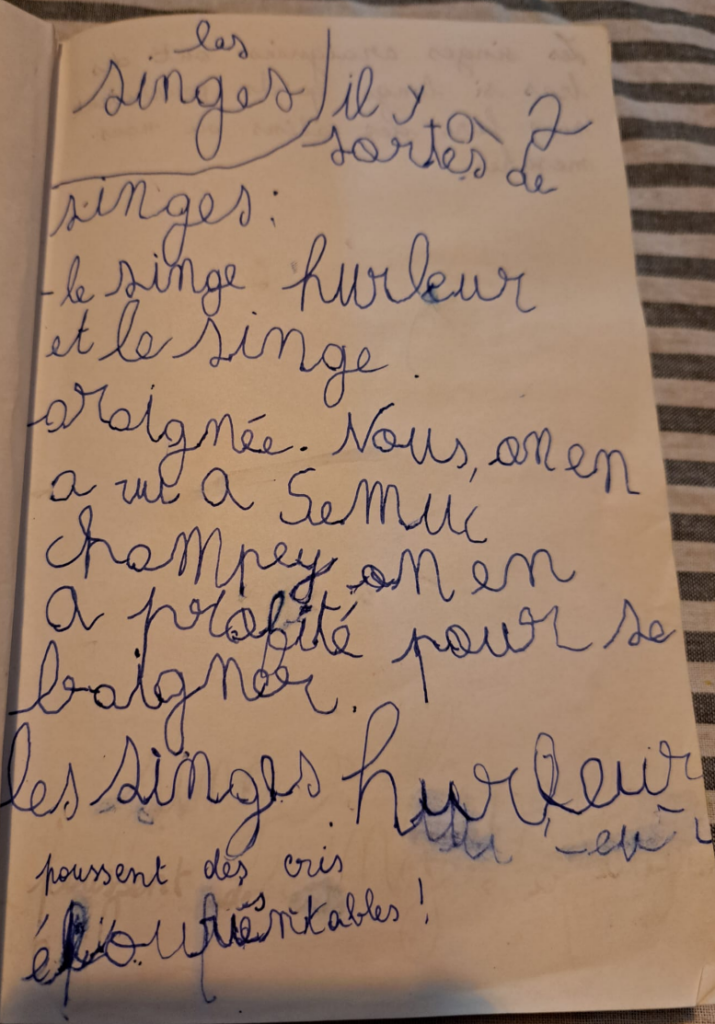 les
singes
il y a 2
sortes de
singes :
- le singe hurleur
et le singe.
araignée. Nous, on en
a vu a Semuc
champey on en
a profité pour se
baigner.
les singes hurleur
poussent des cris
épouventables !